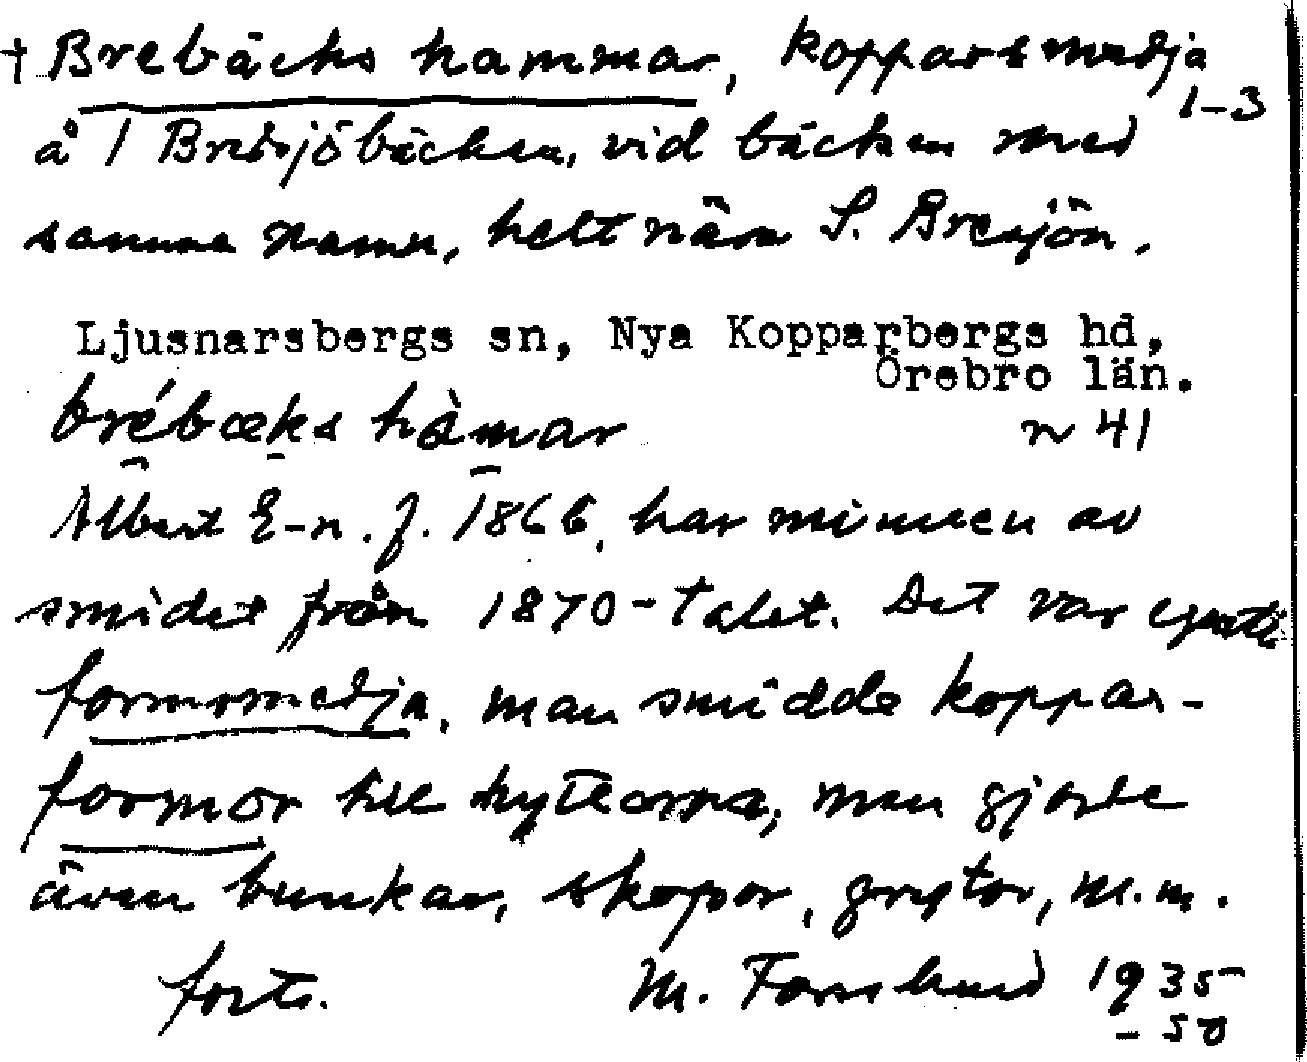 † Brebäcks hammar, kopparsmedja
1-3
å 1 Bredsjöbäcken, vid bäcken med
samma namn, helt nära S. Bresjön.
Ljusnarsbergs sn, Nya Kopparbergs hd,
Örebro län.
brébæks hàmar
n 41
Albert E-n. f. 1866, har minnen av
smidet från 1870-talet. Det var
formsmedja, man smidde koppar-
formor till hyttorna, man gjorde
även bunkar, skopor, grytor, m.m.
forts. M. Forslund 1935
- 50